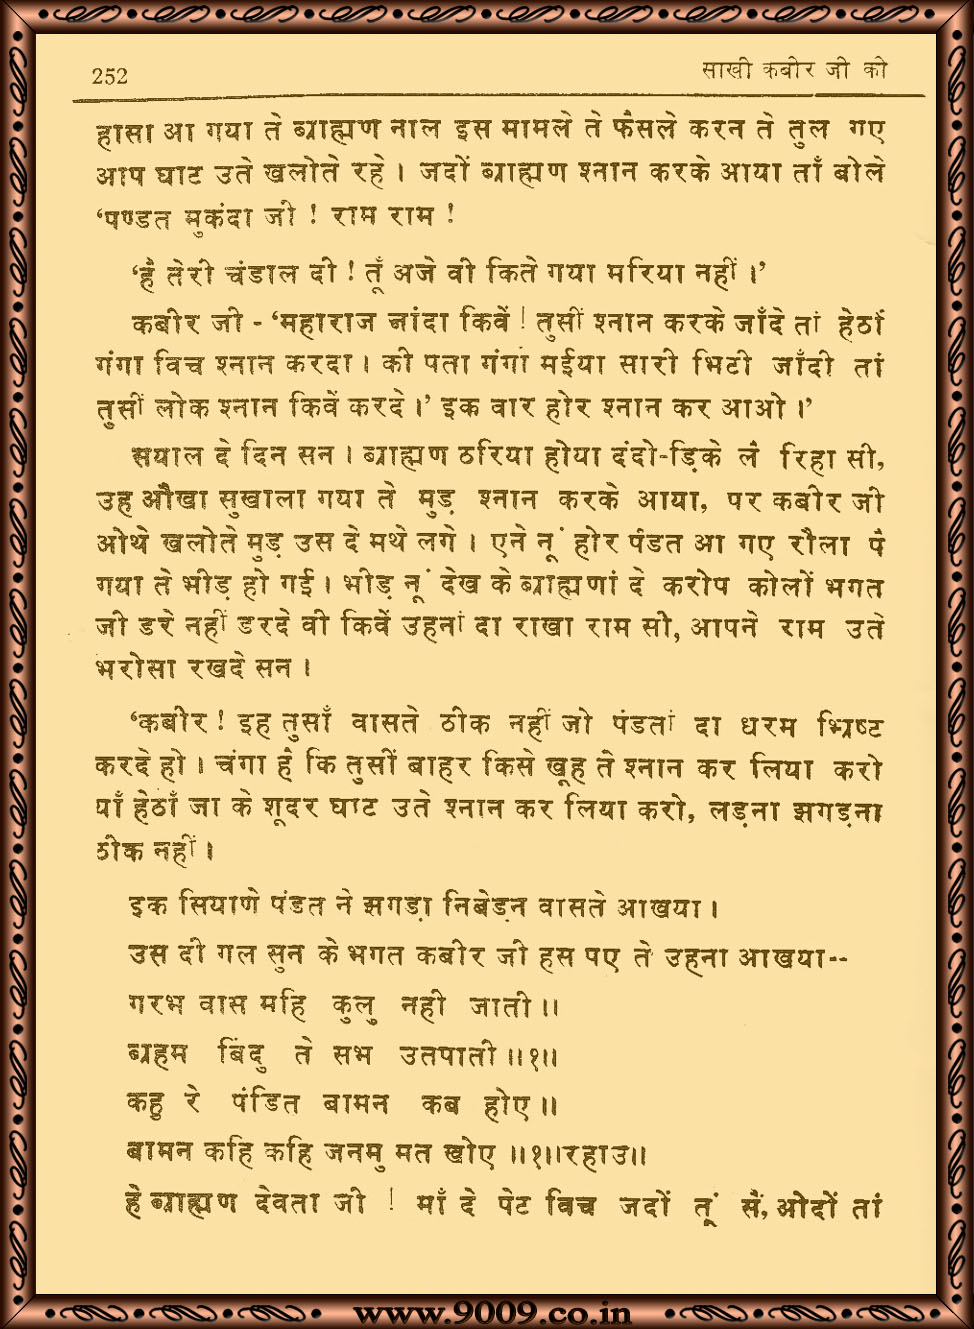 252
साखी कबीर जी की
हासा आ गया ते ब्राह्मण नाल इस मामले ते फैसले करन ते तुल गए
आप घाट उते खलोते रहे । जदों ब्राह्मण श्नान करके आया ताँ बोले
‘पण्डत मुकंदा जी ! राम राम !
‘हैं तेरी चंडाल दी ! तूँ अजे वी किते गया मरिया नहीं ।’
कबीर जी - ‘महाराज जांदा किवें ! तुसीं श्नान करके जाँदे तां हेठों
गंगा विच श्नान करदा । की पता गंगा मईया सारी भिटी जाँदी तां
तुसीं लोक श्नान किवें करदे ।’ इक वार होर श्नान कर आओ ।’
सयाल दे दिन सन । ब्राह्मण ठरिया होया दंदो-ड़िके लै रिहा सी,
उह औखा सुखाला गया ते मुड़ श्नान करके आया, पर कबीर जी
ओथे खलोते मुड़ उस दे मथे लगे । एने नूं होर पंडत आ गए रौला पै
गया ते भीड़ हो गई । भीड़ नूं देख के ब्राह्मणां दे करोप कोलों भगत
जी डरे नहीं डरदे वी किवें उहनां दा राखा राम सी, आपने राम उते
भरोसा रखदे सन ।
‘कबीर ! इह तुसाँ वासते ठीक नहीं जो पंडतां दा धरम भ्रिष्ट
करदे हो । चंगा है कि तुसीं बाहर किसे खूह ते श्नान कर लिया करो
याँ हेठाँ जा के शूदर घाट उते श्नान कर लिया करो, लड़ना झगड़ना
ठीक नहीं ।
इक सियाणे पंडत ने झगड़ा निबेड़न वासते आखया ।
उस दी गल सुन के भगत कबीर जी हस पए ते उहना आखया--
गरभ वास महि कुलु नही जाती ।।
ब्रहम बिंदु ते सभ उतपाती ।।१।।
कहु रे पंडित बामन कब होए ।।
बामन कहि कहि जनमु मत खोए ।।१।।रहाउ।।
हे ब्राह्मण देवता जी ! माँ दे पेट विच जदों तूं सैं, ओदों तां
www.9009.co.in